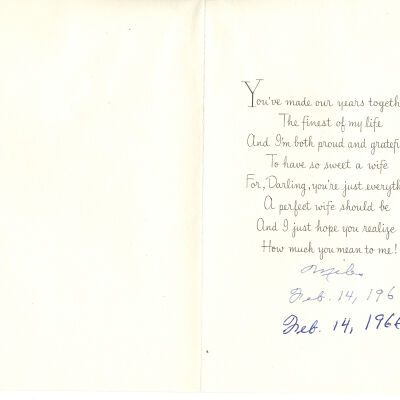 You've made our years togeth
The finest of my life
And I'm both proud and gratef
To have so sweet a wife
For, Darling, you're just everyth
A perfect wife should be
And I just hope you realize
How much you mean to me!
Feb. 14, 196
Feb. 14, 1966